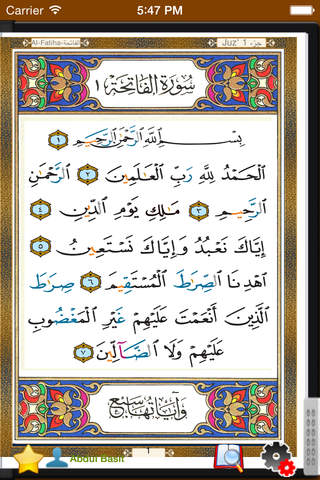 Carrier 5:47 PM
Al-Fatiha-الفاتحة Juz' 1 جزء
سُورَةُ الفَاتِحَةِ ١
بِسْمِ اللَّهِ الرَّحْمَٰنِ الرَّحِيمِ ١
الْحَمْدُ لِلَّهِ رَبِّ الْعَالَمِينَ ٢ الرَّحْمَٰنِ
الرَّحِيمِ ٣ مَالِكِ يَوْمِ الدِّينِ ٤
إِيَّاكَ نَعْبُدُ وَإِيَّاكَ نَسْتَعِينُ ٥
اهْدِنَا الصِّرَاطَ الْمُسْتَقِيمَ ٦ صِرَاطَ
الَّذِينَ أَنْعَمْتَ عَلَيْهِمْ غَيْرِ الْمَغْضُوبِ
عَلَيْهِمْ وَلَا الضَّآلِّينَ ٧
وَآيَاتُهَا سَبْعٌ
Abdul Basit 1